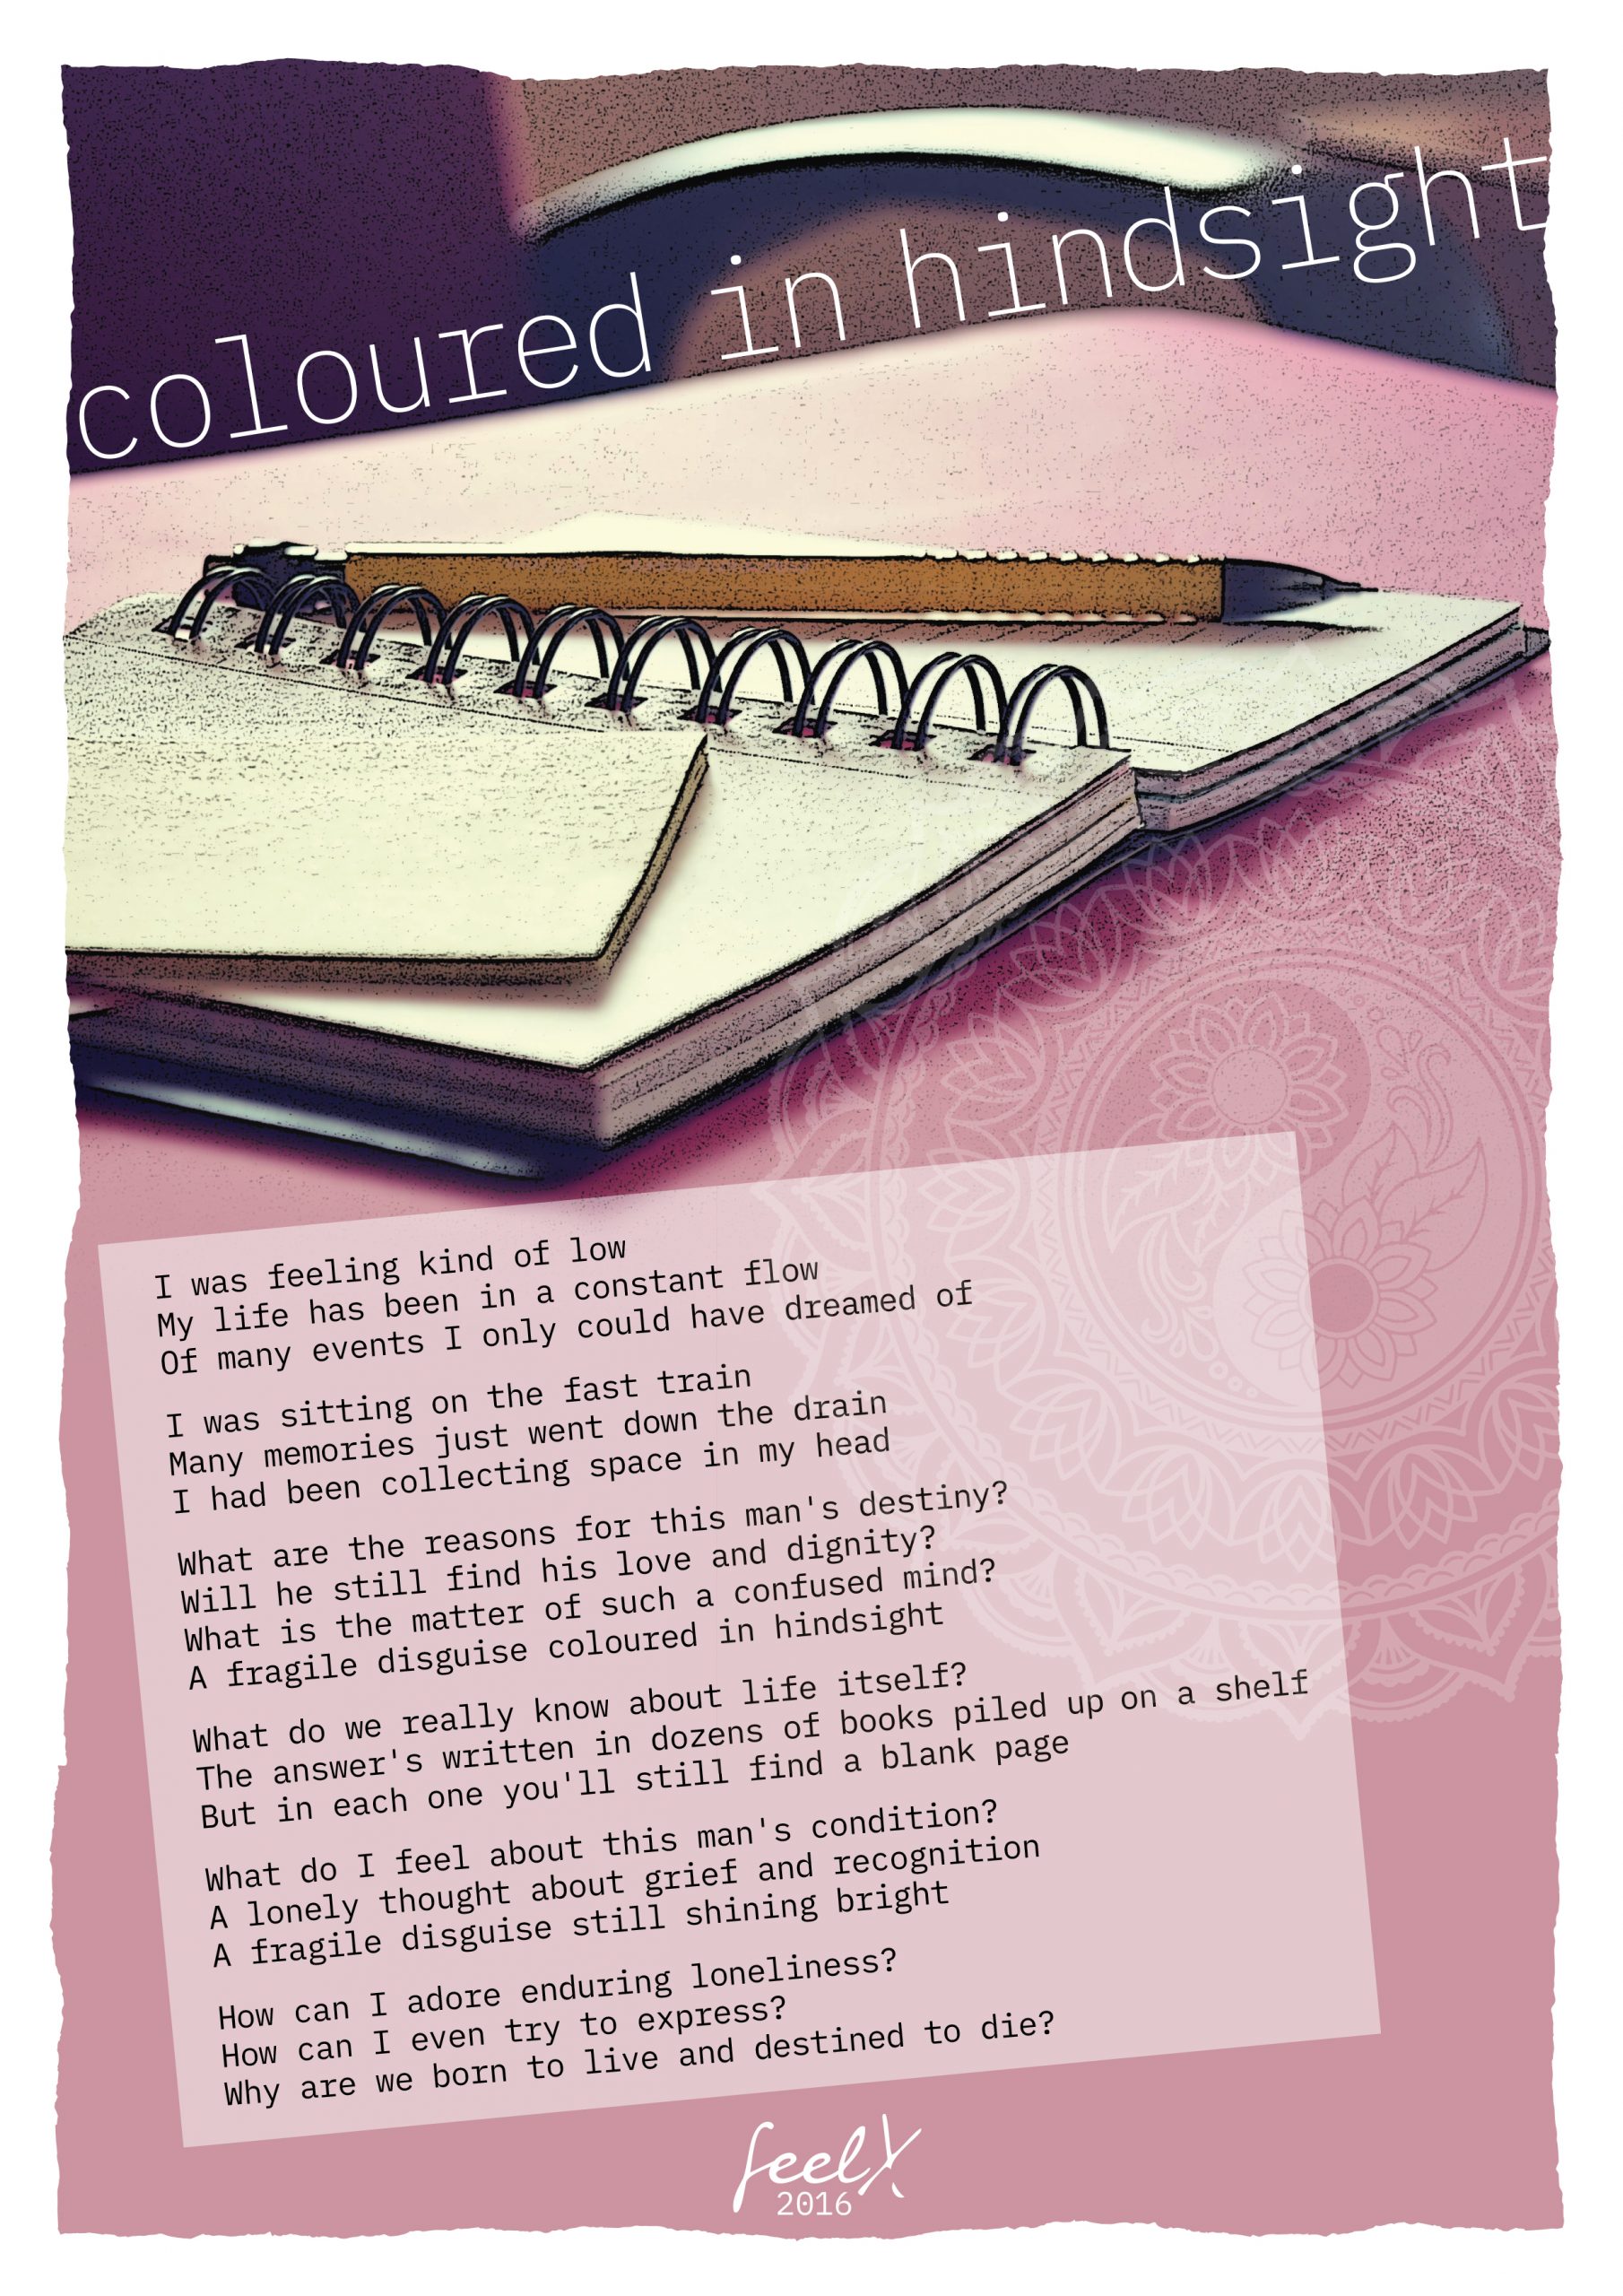 coloured in hindsight
I was feeling kind of low
My life has been in a constant flow
Of many events I only could have dreamed of
I was sitting on the fast train
Many memories just went down the drain
I had been collecting space in my head
What are the reasons for this man's destiny?
Will he still find his love and dignity?
What is the matter of such a confused mind?
A fragile disguise coloured in hindsight
What do we really know about life itself?
The answer's written in dozens of books piled up on a shelf
But in each one you'll still find a blank page
What do I feel about this man's condition?
A lonely thought about grief and recognition
A fragile disguise still shining bright
How can I adore enduring loneliness?
How can I even try to express?
Why are we born to live and destined to die?
feelX
2016